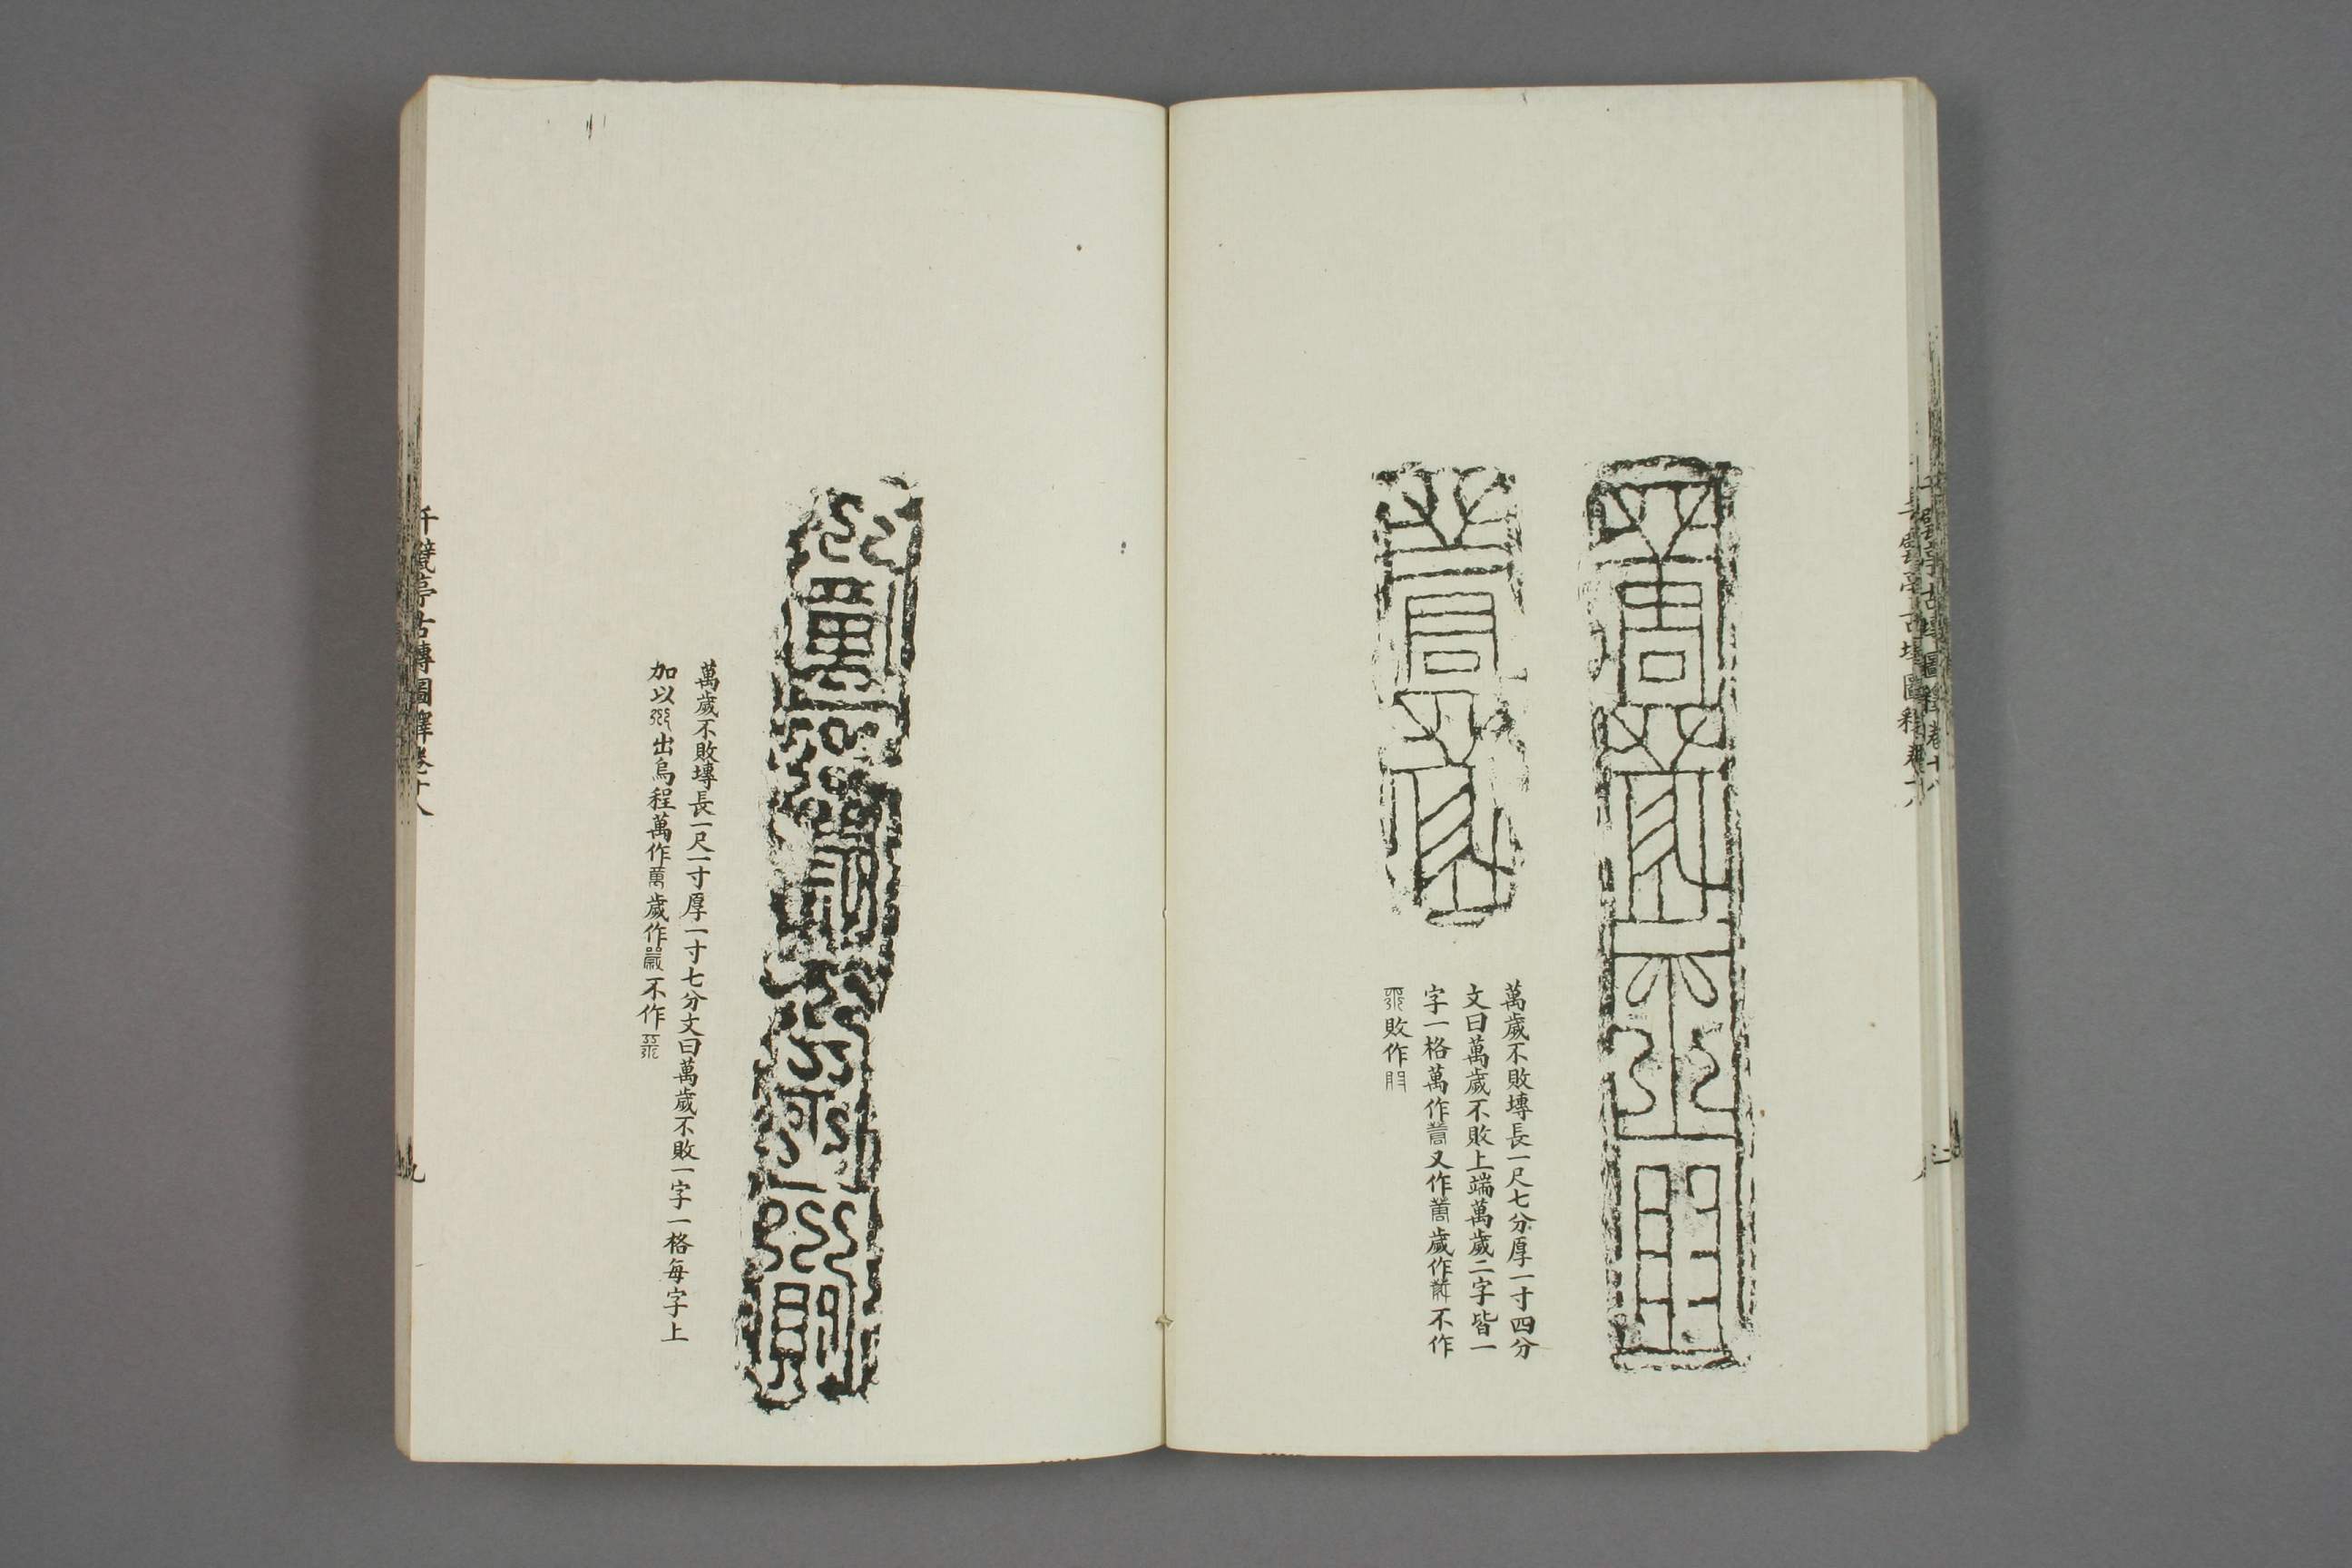 萬歲不敗塼長一尺七分厚一寸四分
文曰萬歲不敗上端萬歲二字皆一
字一格萬作又作歲作不作
敗作
萬歲不敗塼長一尺一寸厚一寸七分文曰萬歲不敗一字一格每字上
加以出烏程萬作歲作不作
千甓亭古塼圖釋卷十八
九